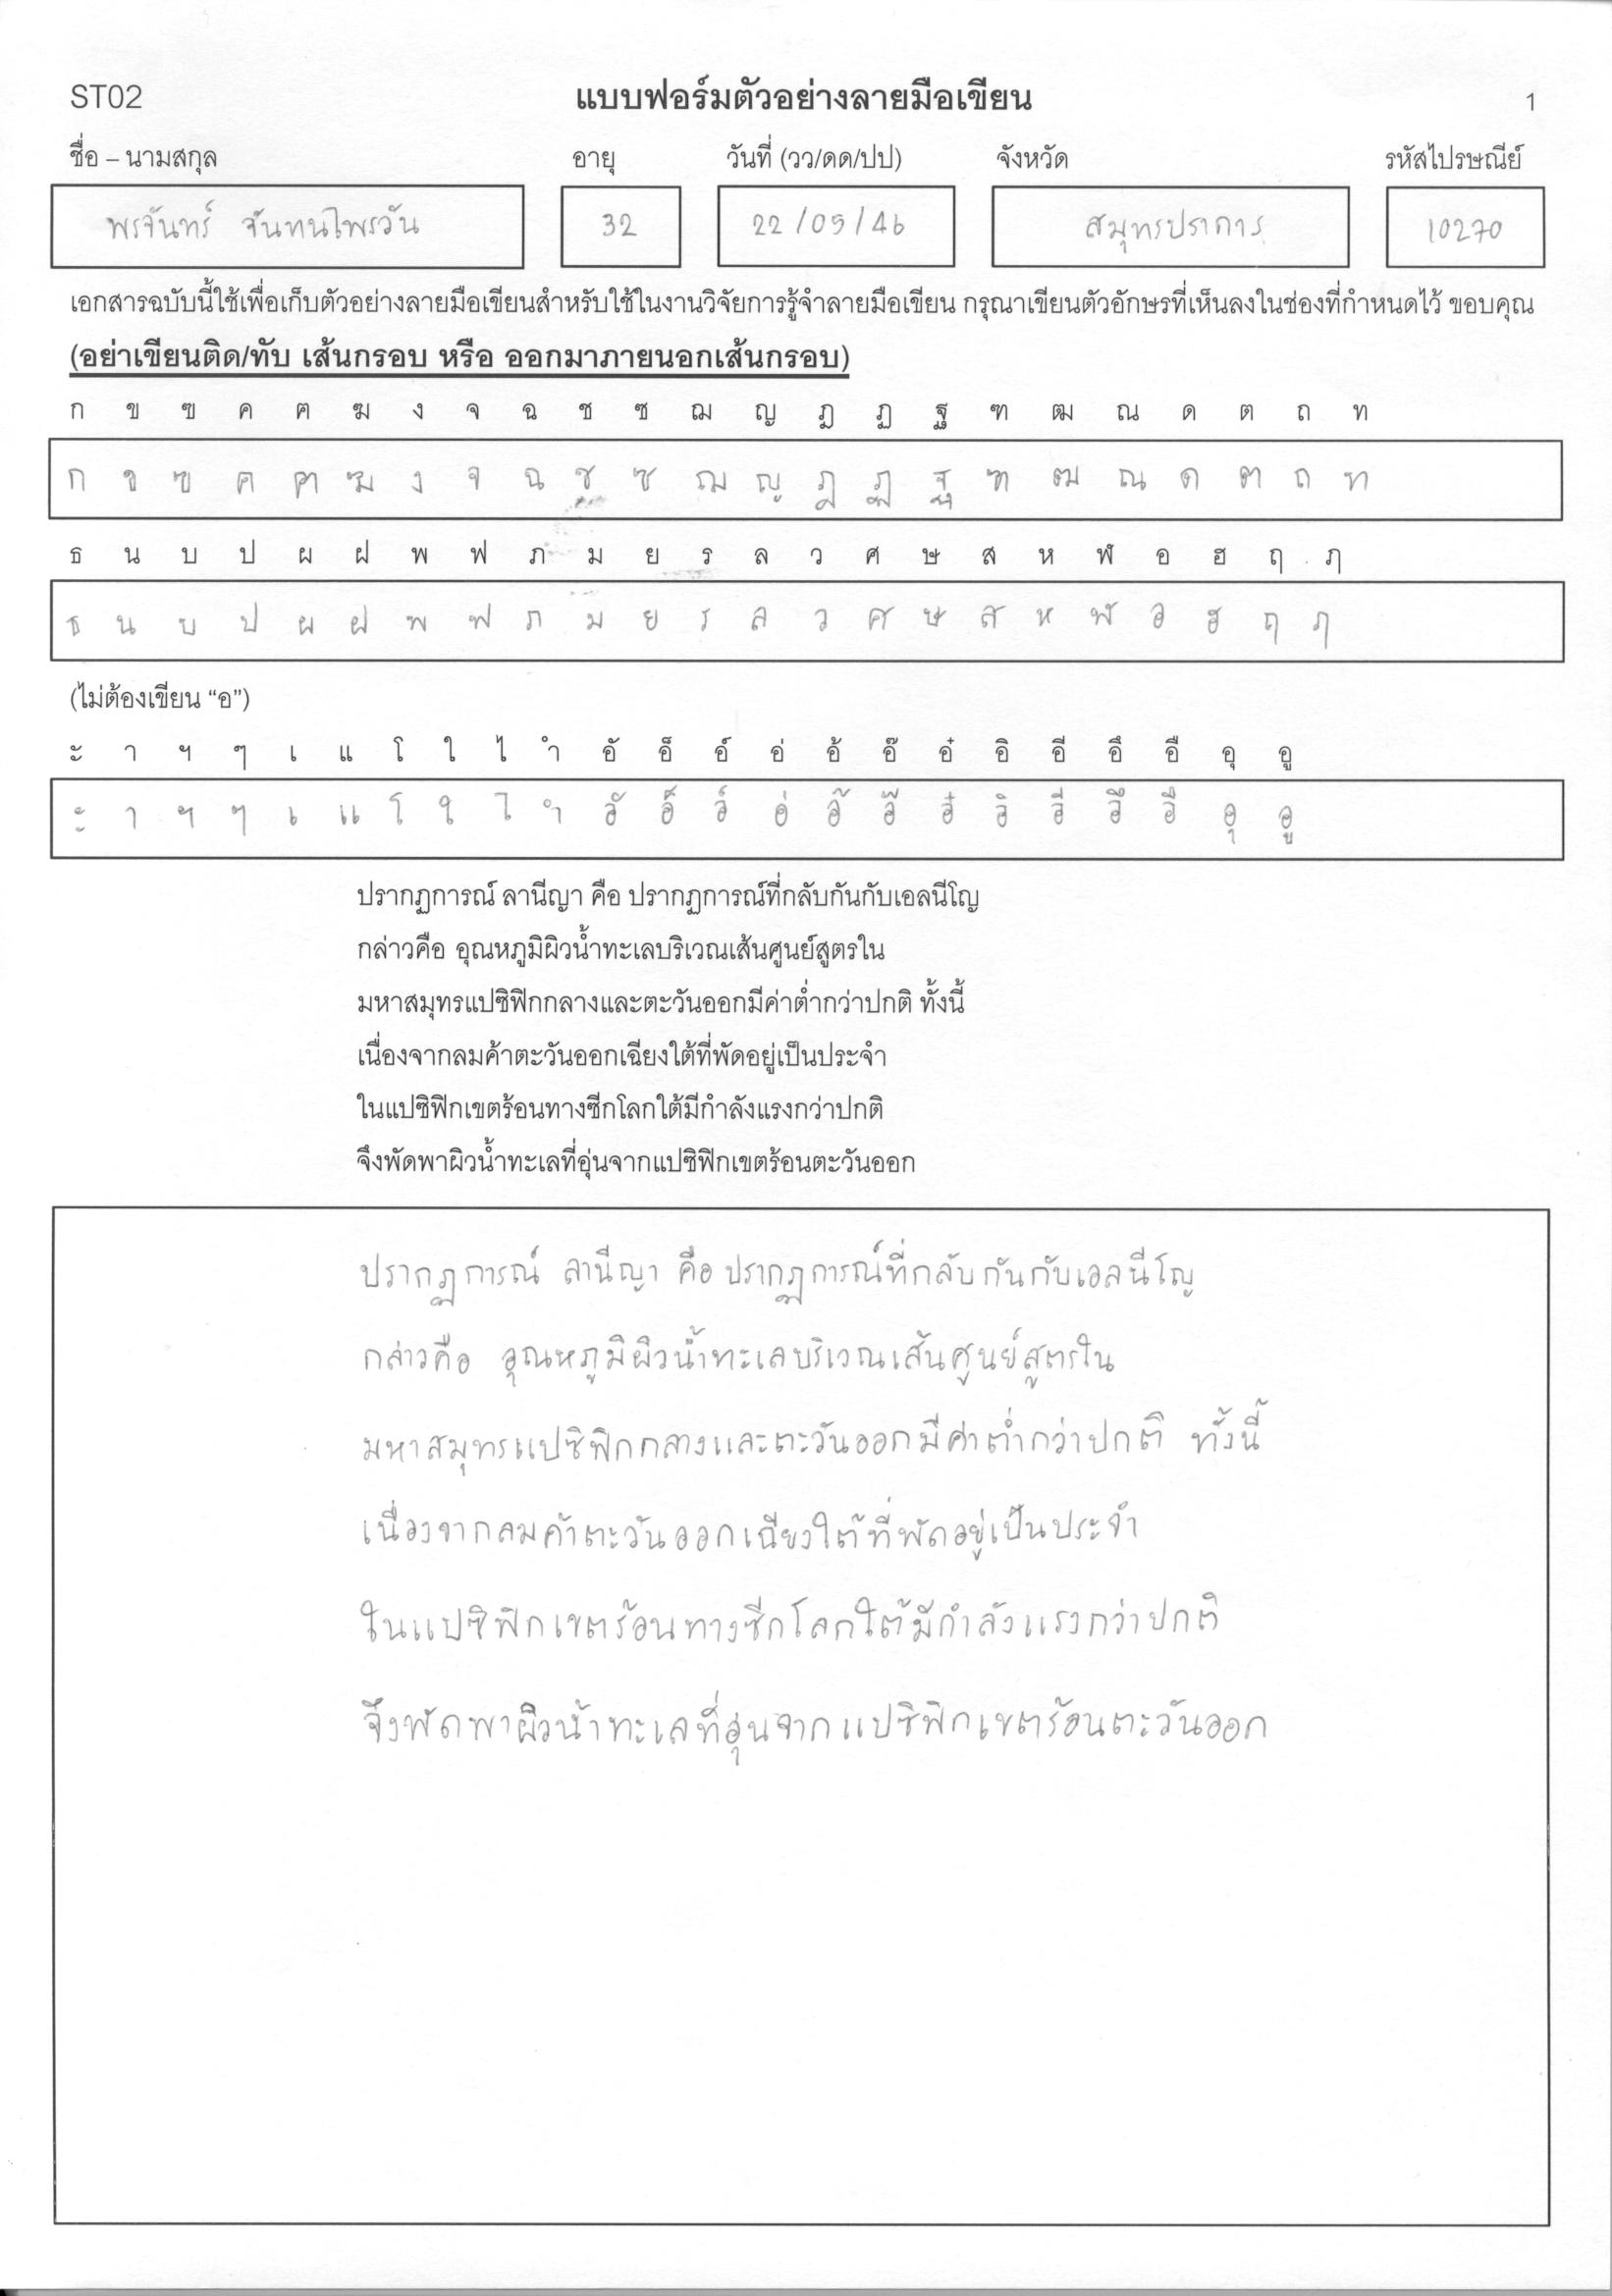 ST02 แบบฟอร์มตัวอย่างลายมือเขียน 1
ชื่อ – นามสกุล อายุ วันที่ (วว/ดด/ปป) จังหวัด รหัสไปรษณีย์
พรจันทร์ จันทนไพรวัน 32 22/09/46 สมุทรปราการ 10270
เอกสารฉบับนี้ใช้เพื่อเก็บตัวอย่างลายมือเขียนสำหรับใช้ในงานวิจัยการรู้จำลายมือเขียน กรุณาเขียนตัวอักษรที่เห็นลงในช่องที่กำหนดไว้ ขอบคุณ
(อย่าเขียนติด/ทับ เส้นกรอบ หรือ ออกมาภายนอกเส้นกรอบ)
ก ข ฃ ค ฅ ฆ ง จ ฉ ช ซ ฌ ญ ฎ ฏ ฐ ฑ ฒ ณ ด ต ถ ท
ก ข ฃ ค ฅ ฆ ง จ ฉ ช ซ ฌ ญ ฎ ฏ ฐ ฑ ฒ ณ ด ต ถ ท
ธ น บ ป ผ ฝ พ ฟ ภ ม ย ร ล ว ศ ษ ส ห ฬ อ ฮ ฤ ฦ
ธ น บ ป ผ ฝ พ ฟ ภ ม ย ร ล ว ศ ษ ส ห ฬ อ ฮ ฤ ฦ
(ไม่ต้องเขียน “อ”)
ะ า ฯ ๆ เ แ โ ใ ไ ำ อั อ็ อ์ อ่ อ้ อ๊ อ๋ อิ อี อึ อื อุ อู
ะ า ฯ ๆ เ แ โ ใ ไ ำ อั อ็ อ์ อ่ อ้ อ๊ อ๋ อิ อี อึ อื อุ อู
ปรากฏการณ์ ลานีญา คือ ปรากฏการณ์ที่กลับกันกับเอลนีโญ
กล่าวคือ อุณหภูมิผิวน้ำทะเลบริเวณเส้นศูนย์สูตรใน
มหาสมุทรแปซิฟิกกลางและตะวันออกมีค่าต่ำกว่าปกติ ทั้งนี้
เนื่องจากลมค้าตะวันออกเฉียงใต้ที่พัดอยู่เป็นประจำ
ในแปซิฟิกเขตร้อนทางซีกโลกใต้มีกำลังแรงกว่าปกติ
จึงพัดพาผิวน้ำทะเลที่อุ่นจากแปซิฟิกเขตร้อนตะวันออก
ปรากฏการณ์ ลานีญา คือ ปรากฏการณ์ที่กลับกันกับเอลนีโญ
กล่าวคือ อุณหภูมิผิวน้ำทะเลบริเวณเส้นศูนย์สูตรใน
มหาสมุทรแปซิฟิกกลางและตะวันออกมีค่าต่ำกว่าปกติ ทั้งนี้
เนื่องจากลมค้าตะวันออกเฉียงใต้ที่พัดอยู่เป็นประจำ
ในแปซิฟิกเขตร้อนทางซีกโลกใต้มีกำลังแรงกว่าปกติ
จึงพัดพาผิวน้ำทะเลที่อุ่นจากแปซิฟิกเขตร้อนตะวันออก